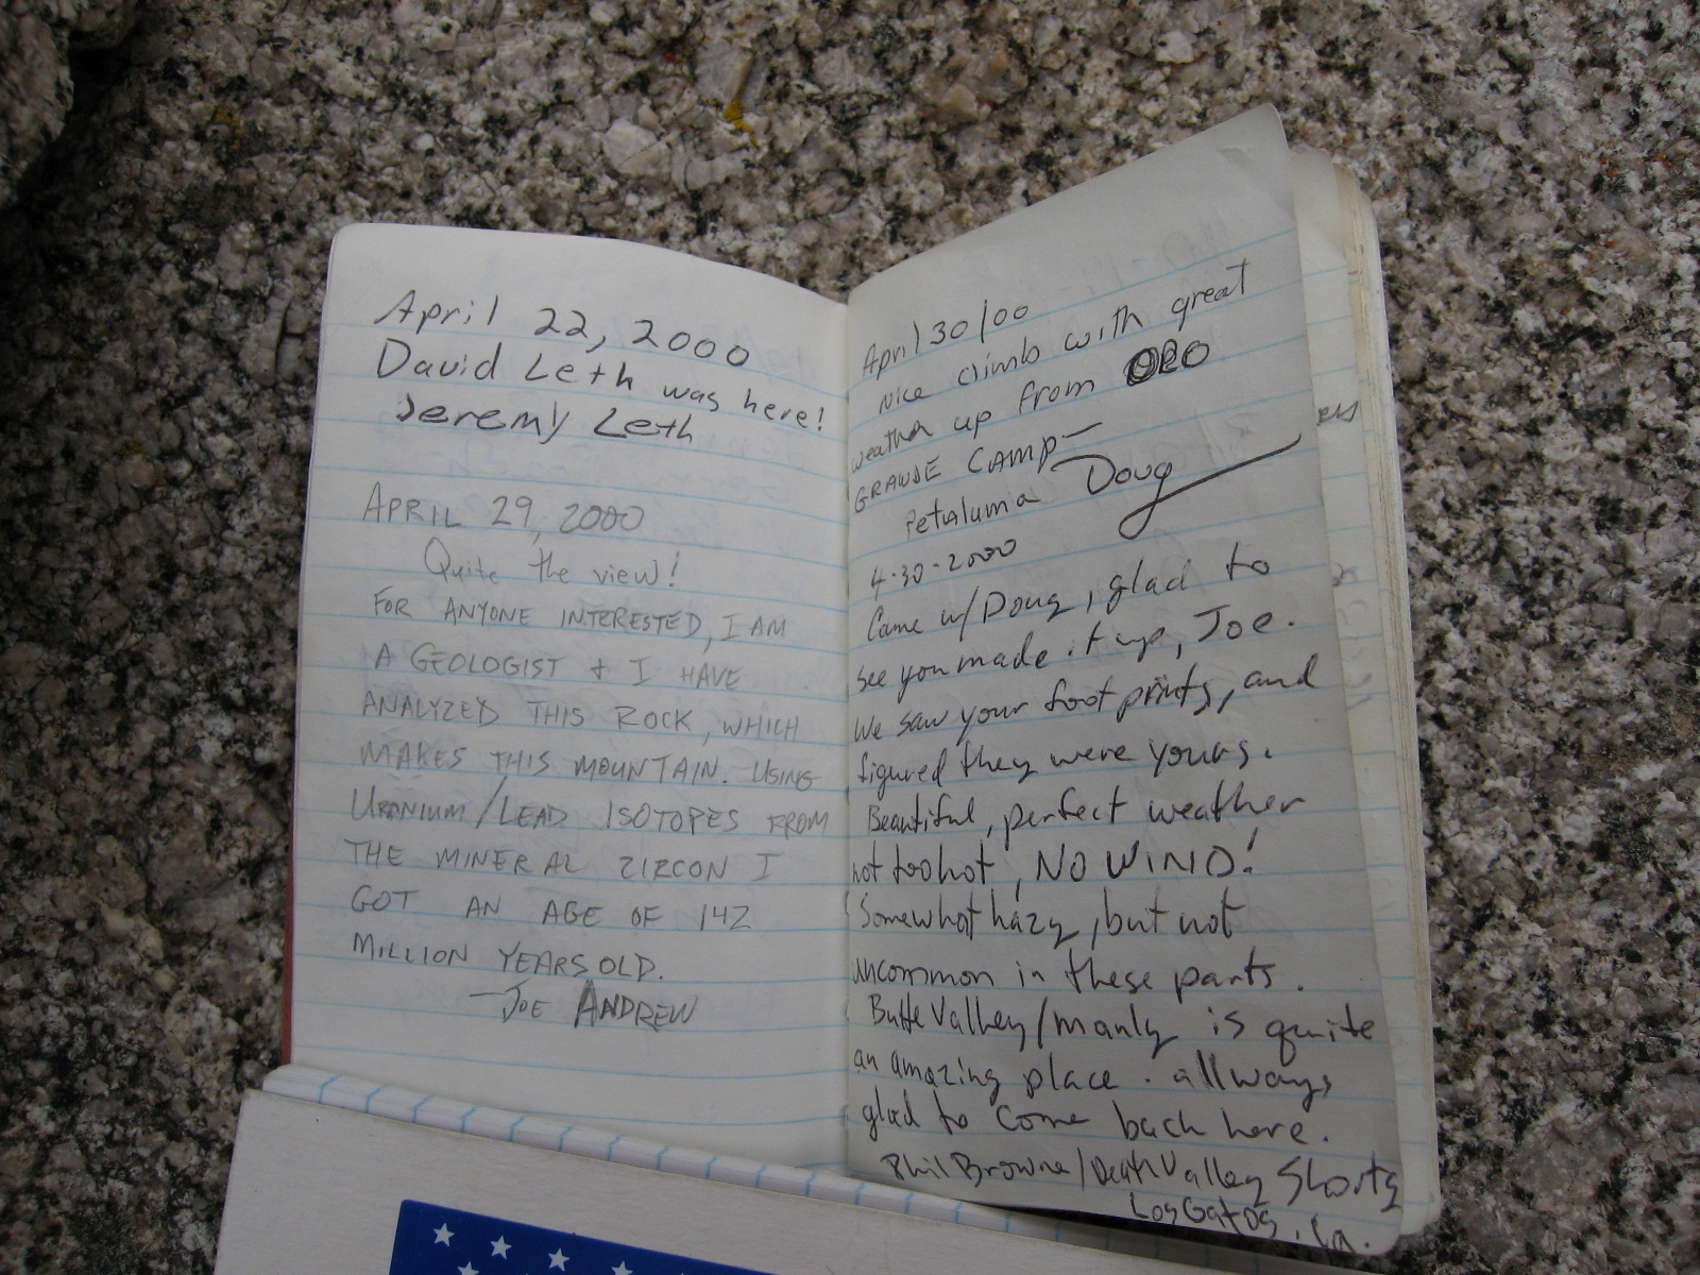 April 22, 2000
David Leth was here!
Jeremy Leth
APRIL 29, 2000
Quite the view!
FOR ANYONE INTERESTED, I AM
A GEOLOGIST + I HAVE
ANALYZED THIS ROCK, WHICH
MAKES THIS MOUNTAIN. USING
URANIUM/LEAD ISOTOPES FROM
THE MINERAL ZIRCON I
GOT AN AGE OF 142
MILLION YEARS OLD.
-JOE ANDREW
April 30/00
Nice climb with great
weather up from ORO
GRANDE CAMP-
Petaluma Doug
4.30.2000
Came w/Doug, glad to
see you made it up, Joe.
We saw your foot prints, and
figured they were yours.
Beautiful, perfect weather
not too hot, NO WIND!
Somewhat hazy, but not
uncommon in these parts.
Butte Valley/Manly is quite
an amazing place. allways
glad to come back here.
Phil Browne/Death Valley Shorty
Los Gatos, Ca.